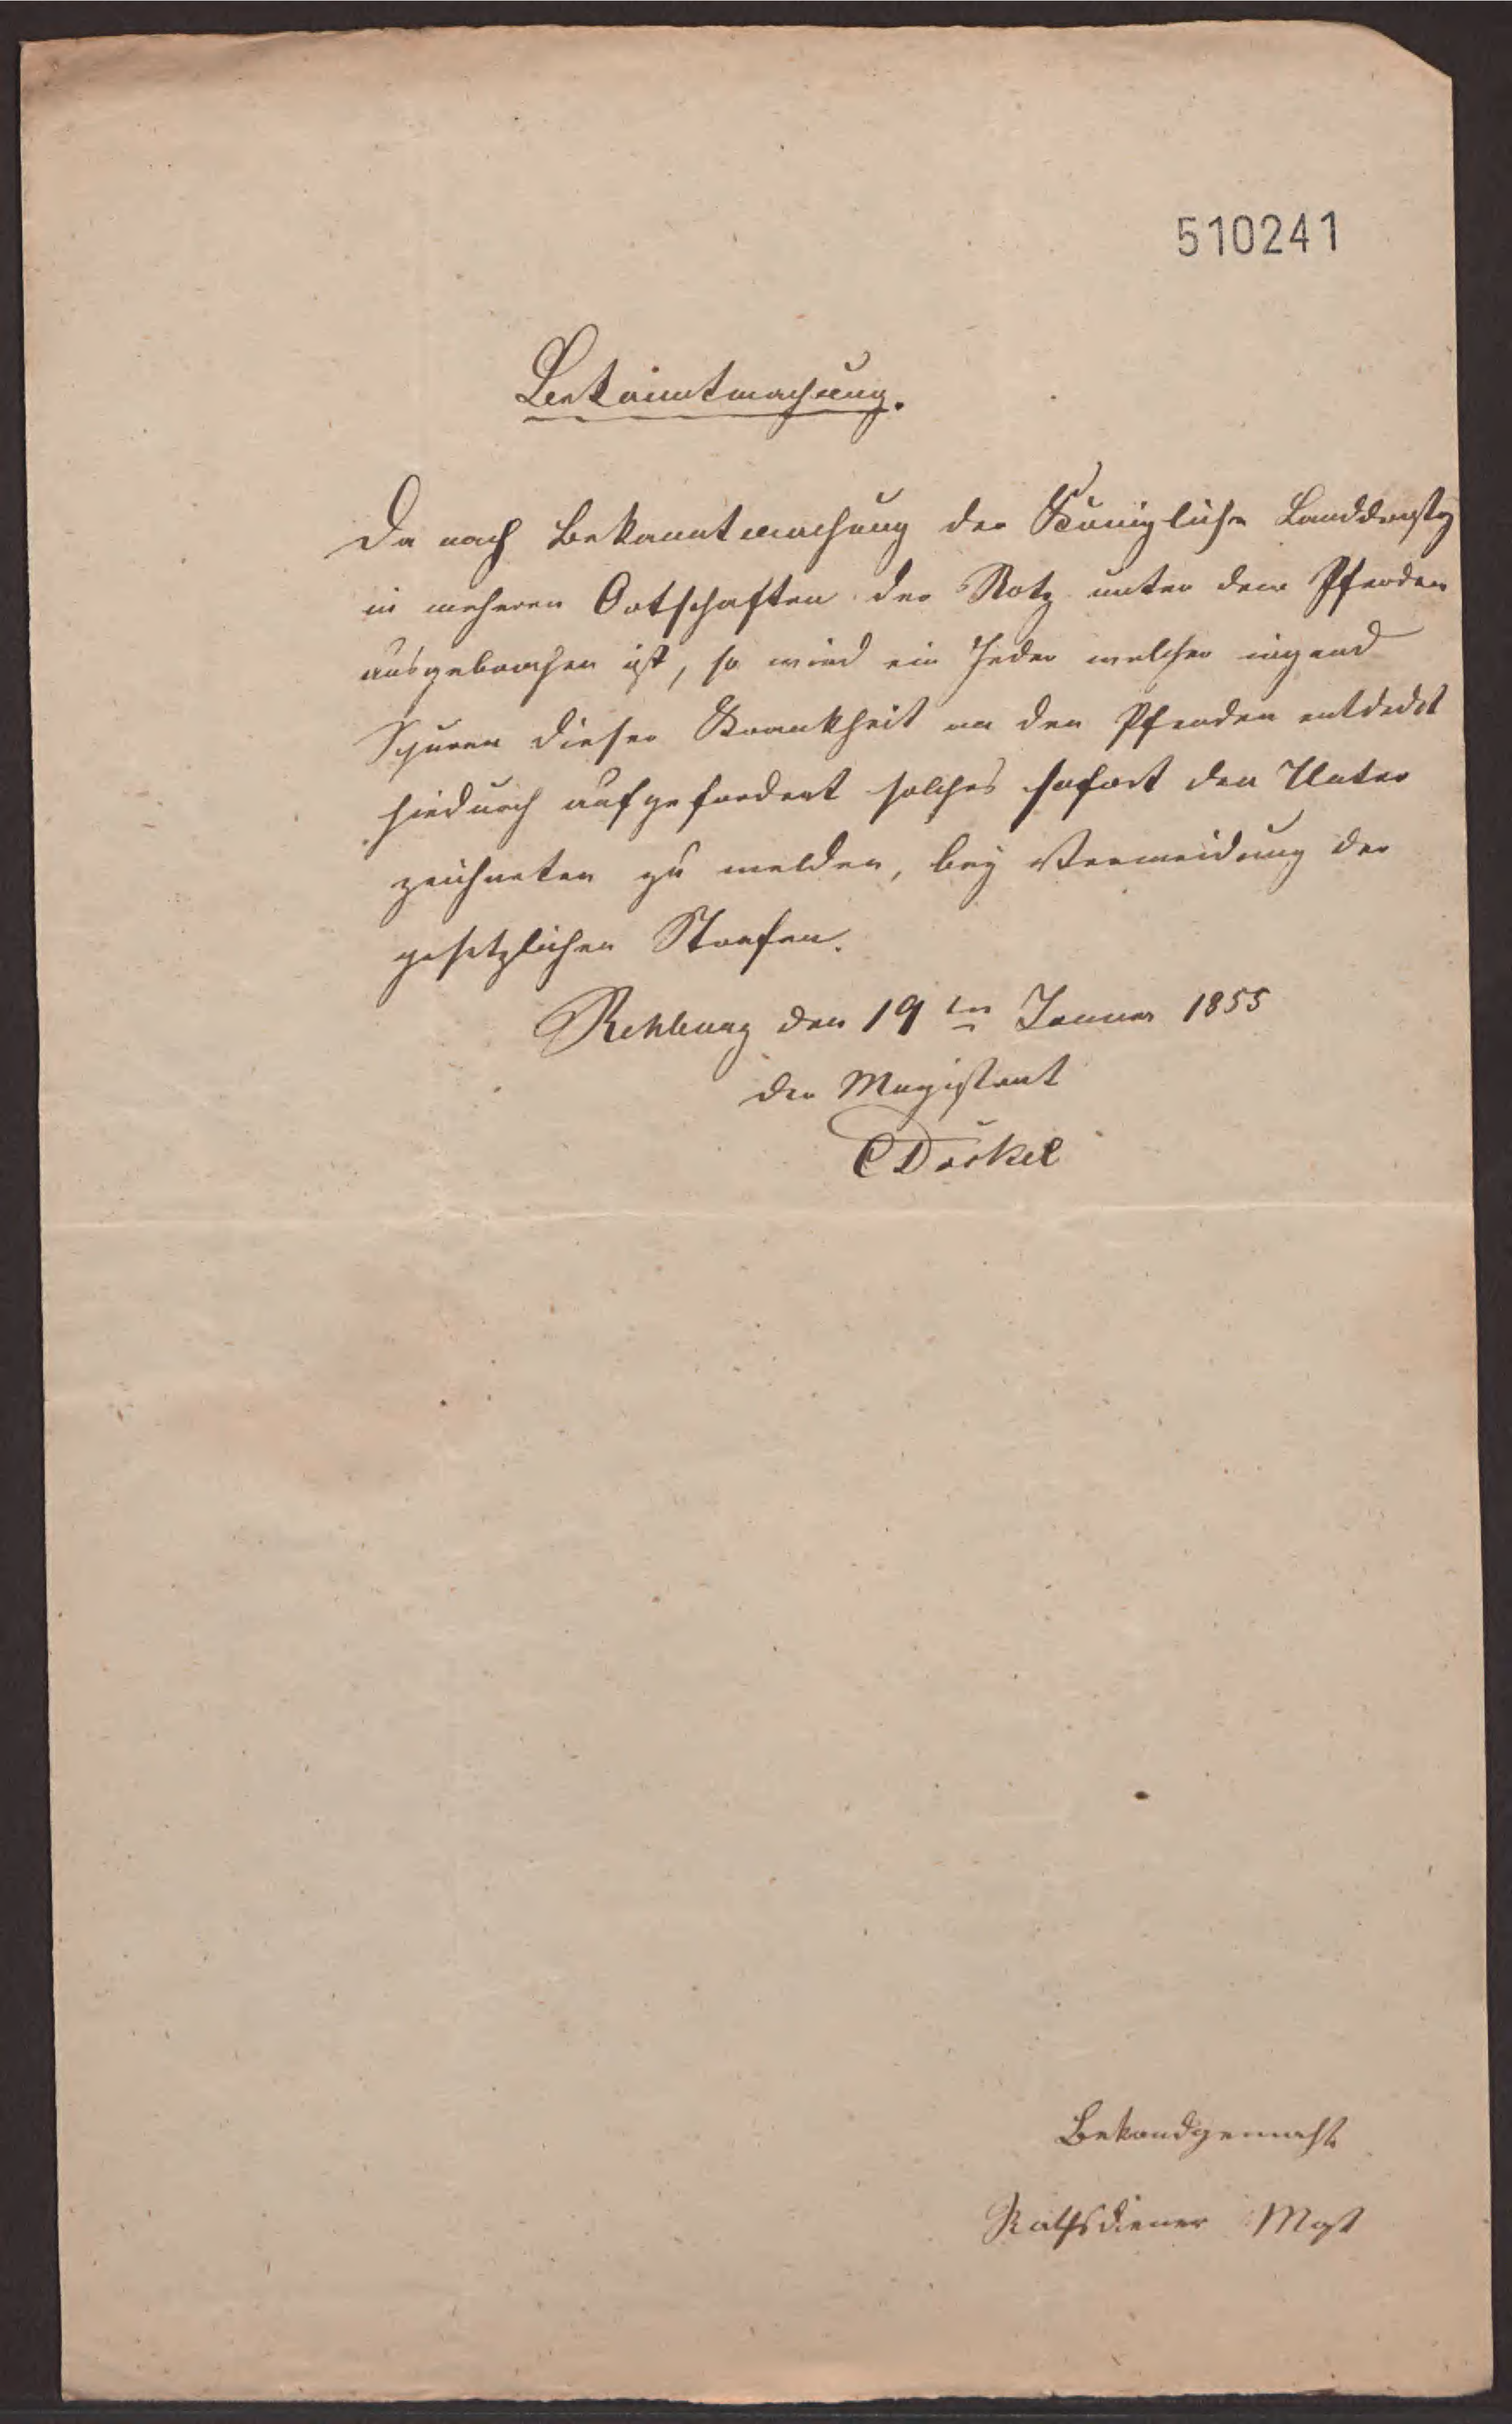 510241
Bekanntmachung.
Da nach Bekanntmachung der Königliche Landdrostey
in meheren Ortschaften der Rotz unter den Pferden
ausgebrochen ist, so wird ein Jeder welcher irgend
Spuren dieser Krankheit an den Pferden entdeckt
hiedurch aufgefordert solches sofort den Unter
zeichneten zu melden, bey Vermeidung der
gesetzlichen Strafen.
Rehburg den 19ten Januar 1855
der Magistrat
Bekandgemacht
Rathsdiener